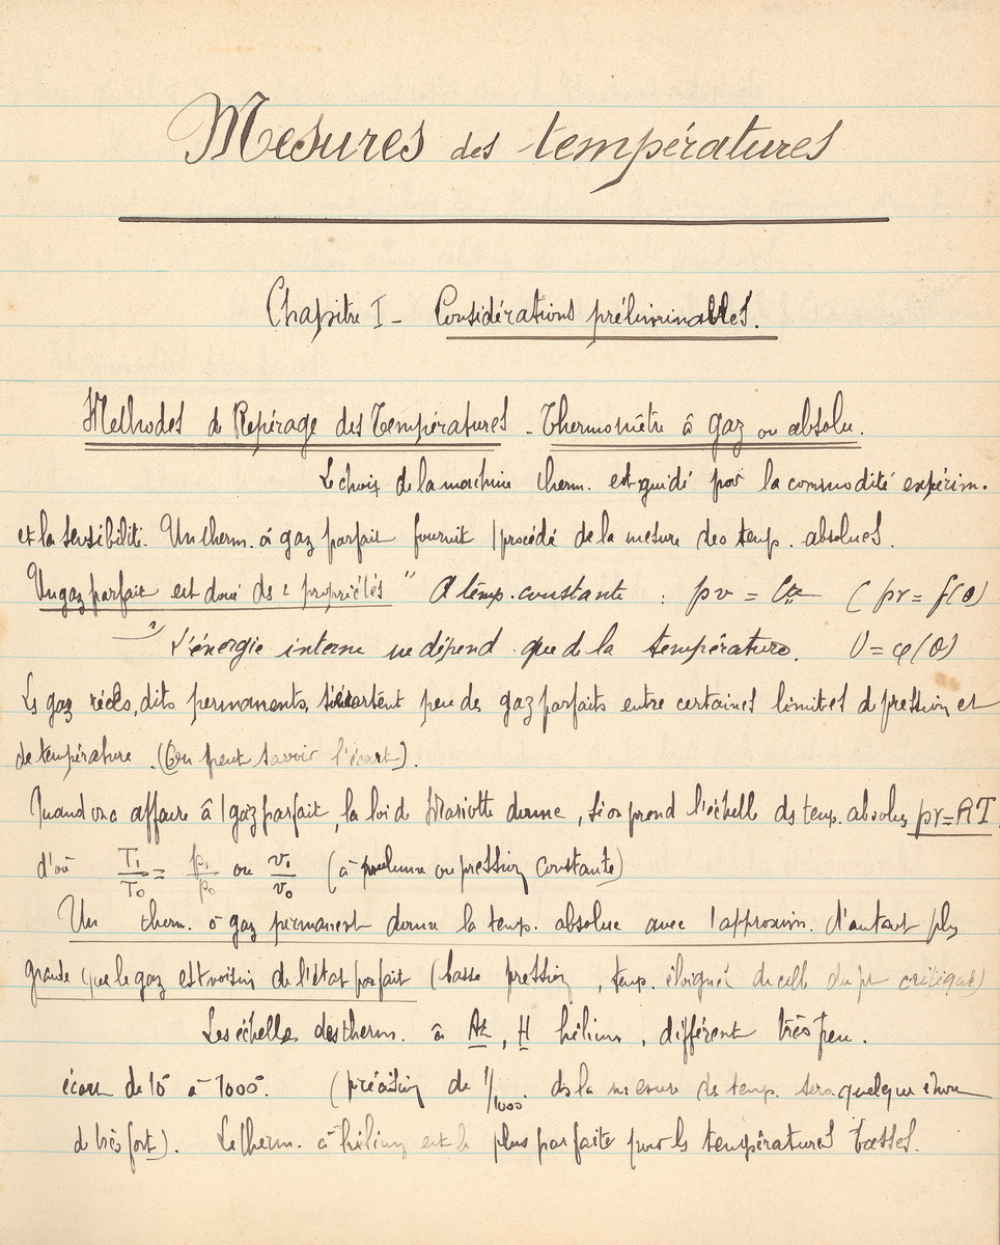 Mesures des températures
Chapitre I - Considérations préliminables.
Méthodes de Repérage des Températures - Thermomètre à gaz ou absolu.
Le choix de la machine therm. est guidé par la commodité expérim.
et la sensibilité. Un therm. à gaz parfait fournit 1 procédé de la mesure des temp. absolues.
Un gaz parfait est doué de 2 propriétés 1° A temp. constante : pv = Cte (pv = f(θ)
2° L'énergie interne ne dépend que de la température. U = φ(θ)
Les gaz réels, dits permanents, s'écartent peu des gaz parfaits entre certaines limites de pression et
de température. (On peut savoir l'écart).
Quand on a affaire à 1 gaz parfait, la loi de Mariotte donne, si on prend l'échelle des temp. absolues pv = RT
d'où T1/T0 = p1/p0 ou v1/v0 (à volume ou pression constante)
Un therm. à gaz permanent donne la temp. absolue avec 1 approxim. d'autant plus
grande que le gaz est voisin de l'état parfait (basse pression, temp. éloignée de celle du pt critique)
Les échelles des therm. à Az, H hélium, diffèrent très peu.
de 10° à 1000°. (précision de 1/1000 ds la mesure de temp. sera quelque chose
de très fort). Le therm. à hélium est le plus parfaite pour les températures basses.